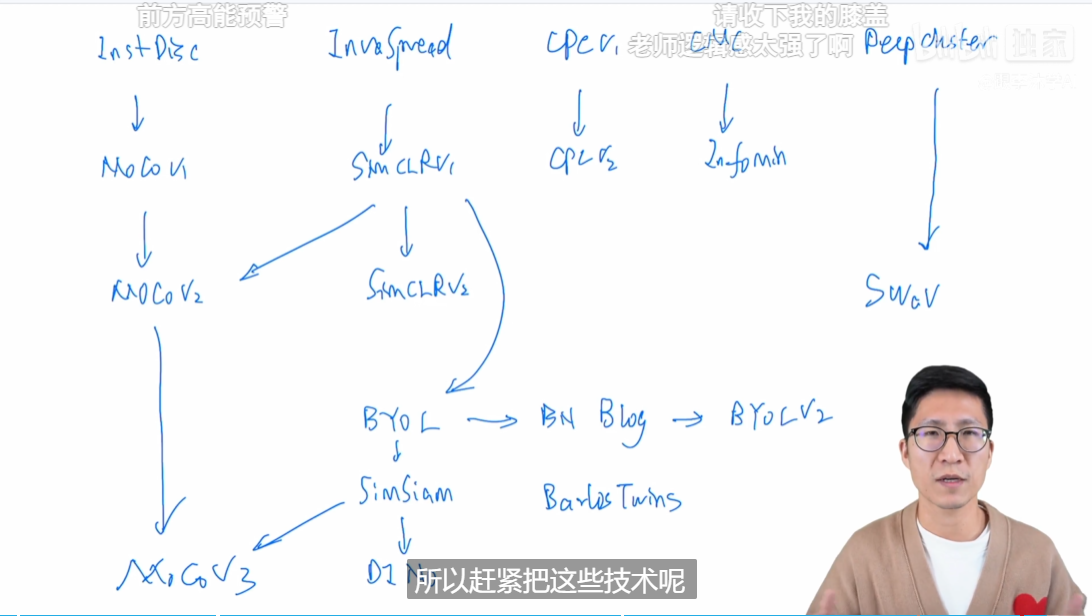 前方高能预警 请收下我的膝盖
InstDisc InvaSpread CPCV1 CMC DeepCluster
老师逻辑感太强了啊 bilibili 独家
MoCoV1 SimCLRV1 CPCV2 Infomin
MOCOV2 SimCLRV2 SWaV
BYOL BN Blog BYOLV2
SimSiam BarlosTwins
MoCoV3
所以赶紧把这些技术呢